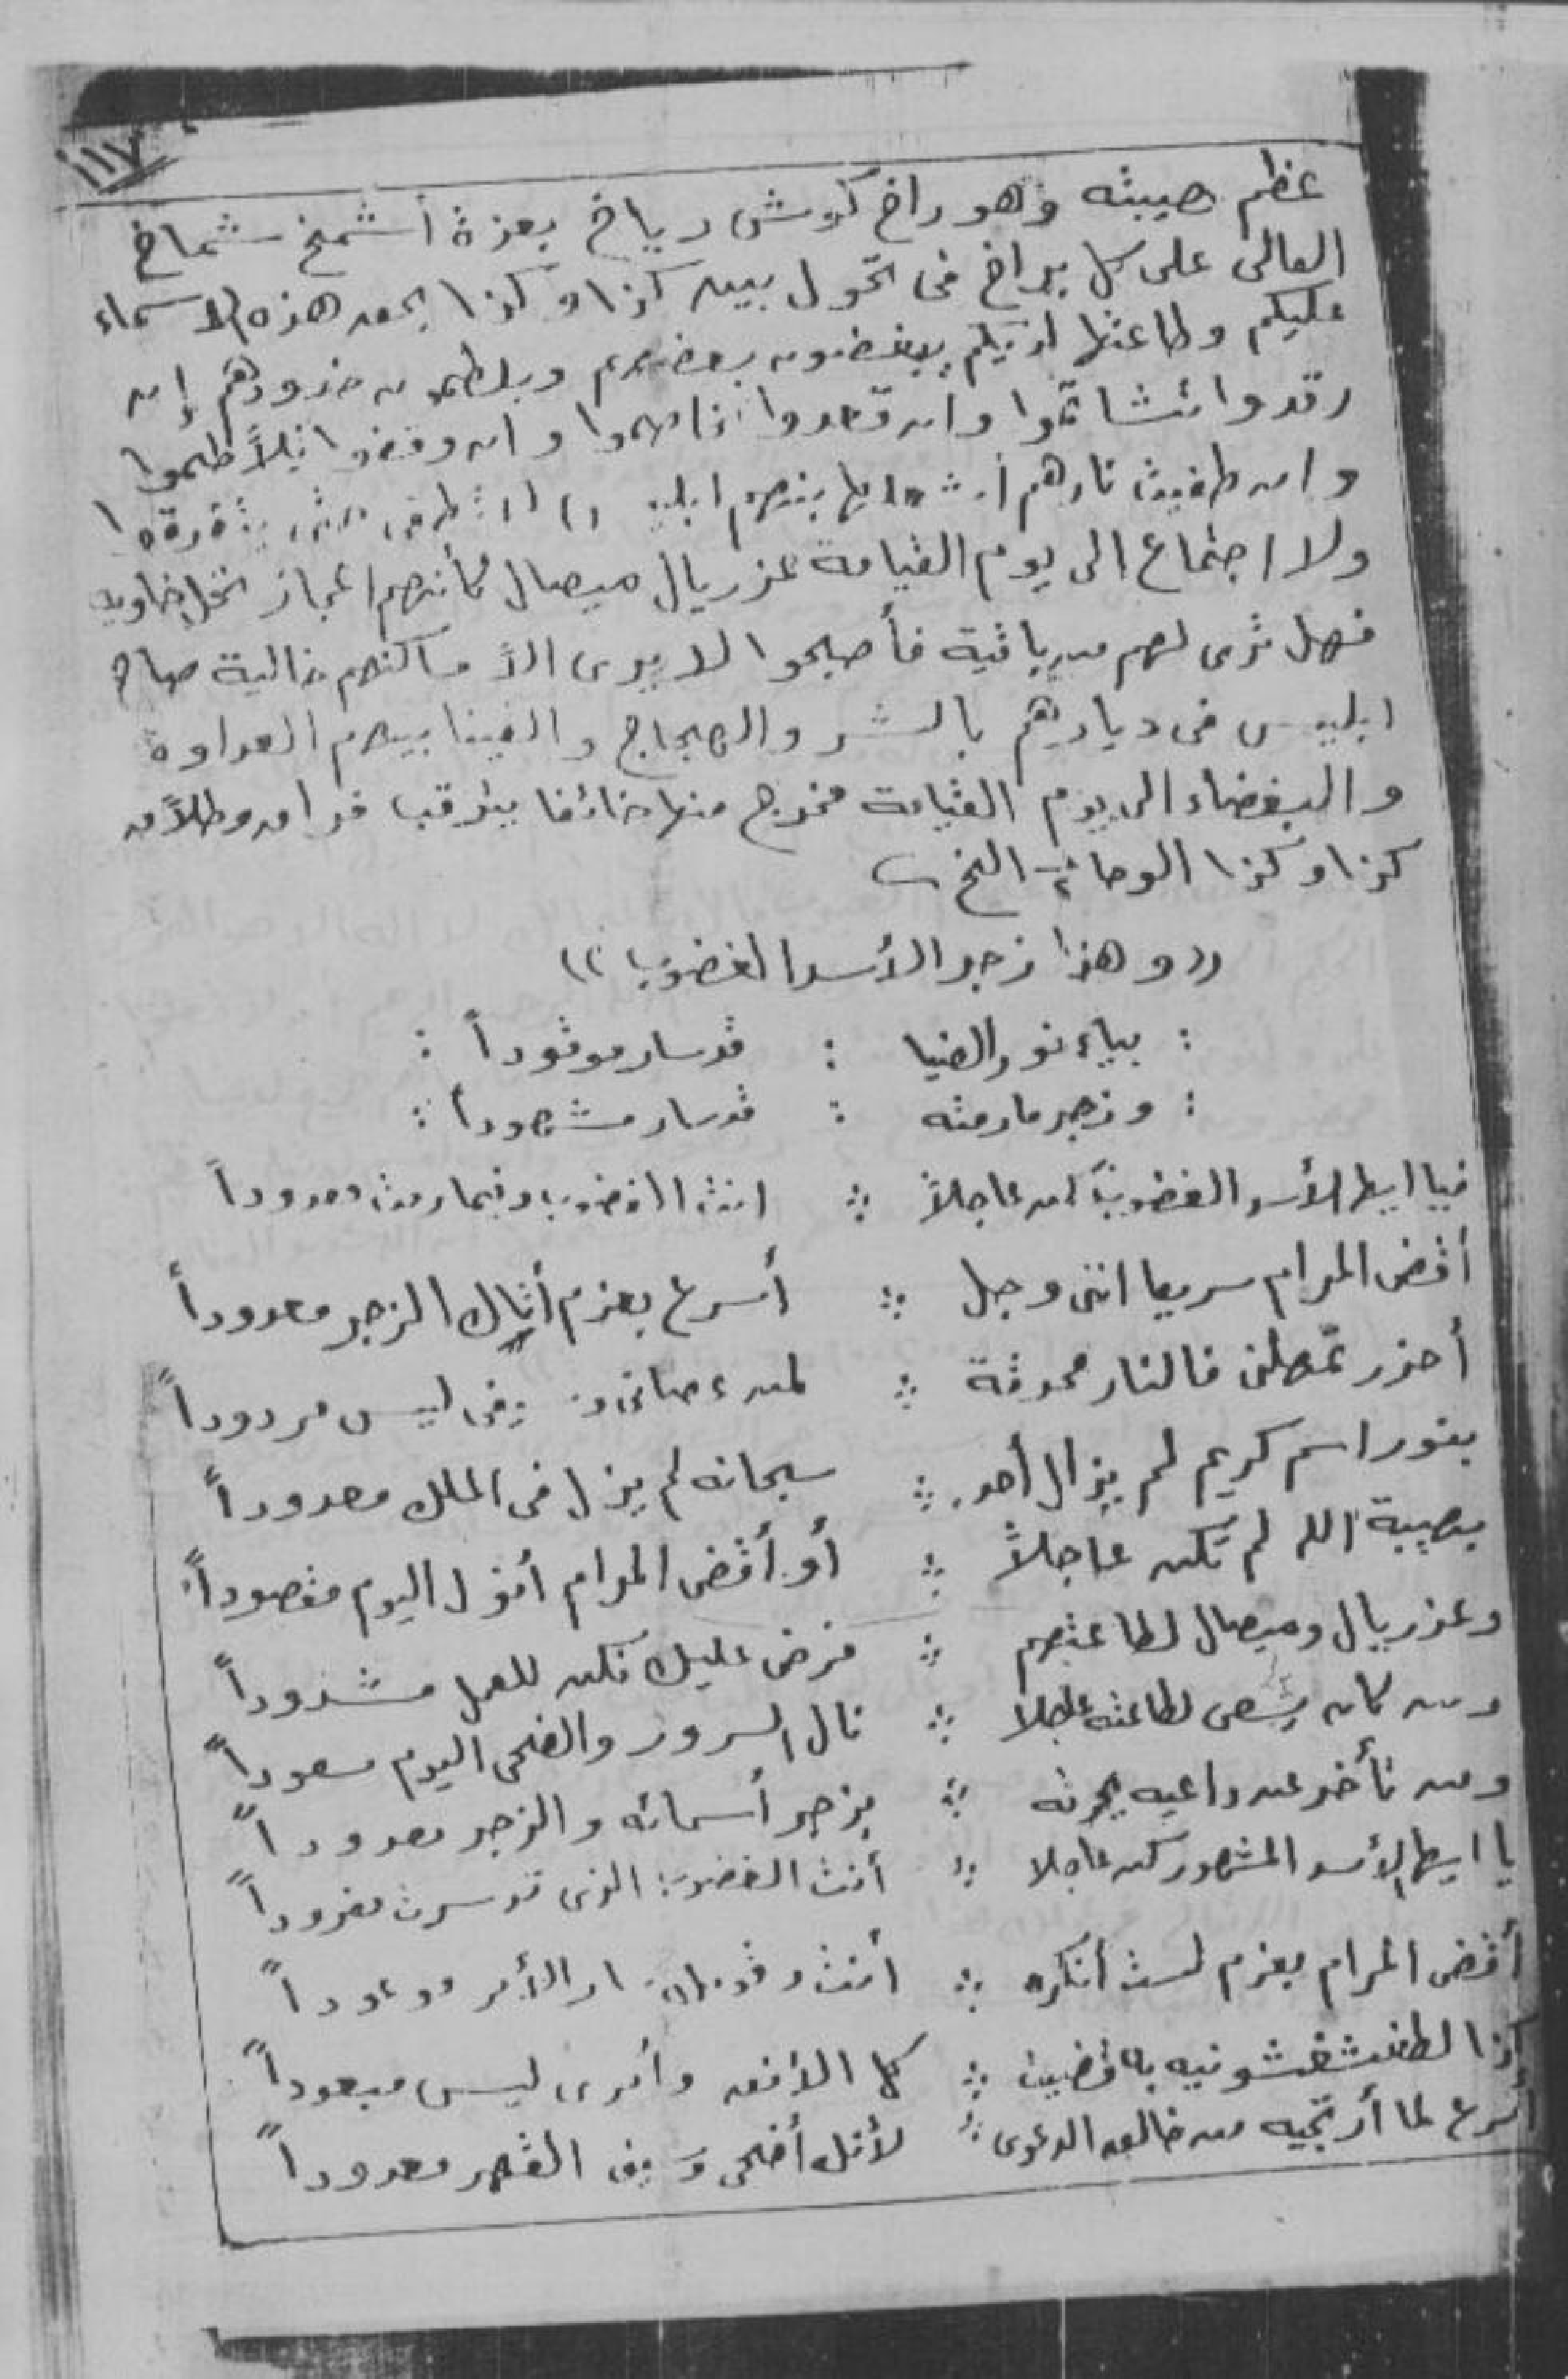 ١١٧
عظم هيبته وهو راخ كوش رياخ بعزة أشمخ شماخ
العالى على كل براخ فى تحول بين كذا وكذا بحق هذه الاسماء
عليكم وطاعتها لديكم يبغضون بعضهم ويلطمون خدودهم إن
رقدوا تشاتموا وان قعدوا تخاصموا وان وقفوا تلاطموا
وان طفيت نارهم أشعلها بينهم ابليس
ولا اجتماع الى يوم القيامة عزريال ميصال كأنهم اعجاز نخل خاوية
فهل ترى لهم من باقية فأصبحوا لا يرى الا مساكنهم خالية صاح
ابليس فى ديارهم بالشر والهجاج والقينا بينهم العداوة
والبغضاء الى يوم القيامة فخرج منها خائفا يترقب فراق وطلاق
كذا وكذا الوحا ٢ الخ
(( وهذا زجر الأسد الغضوب ))
: بياء نور الضيا : قد سار موقوداً :
: وزجر مارمته : قد سار مشهوداً :
فيا ايها الأسد الغضوب كن عاجلاً : انت الغضوب وفيما رمت
أقض المرام سريعا اننى وجل : أسرع بعزم أتاك الزجر معدوداً
أحذر تمهلن فالنار محرقة : لمن عصانى ليس مردوداً
بنور اسم كريم لم يزال أحد : سبحانه لم يزل فى الملك معدوداً
بهيبة الله لم تكن عاجلاً : أو أقض المرام أنول اليوم مقصوداً
وعزريال وميصال لطاعتهم : فرض عليك فكن للعمل مشدوداً
ومن كان يسعى لطاعته عاجلا : نال السرور والضحى اليوم مسعوداً
ومن تأخر عن داعيه يحرقه : بزجر أسمائه والزجر معدوداً
يا ايها الأسد المشهور كن عاجلا : أنت الغضوب الذى قد سرت مفروداً
أقض المرام بعزم لست أنكره : أنت وقد الأمر
كذا لطفشقشونيه : كل الأفق وأمرى ليس مبعوداً
أسرع لما أرتجيه من خالص الدعوى : لأنك أضحى القهر معدوداً